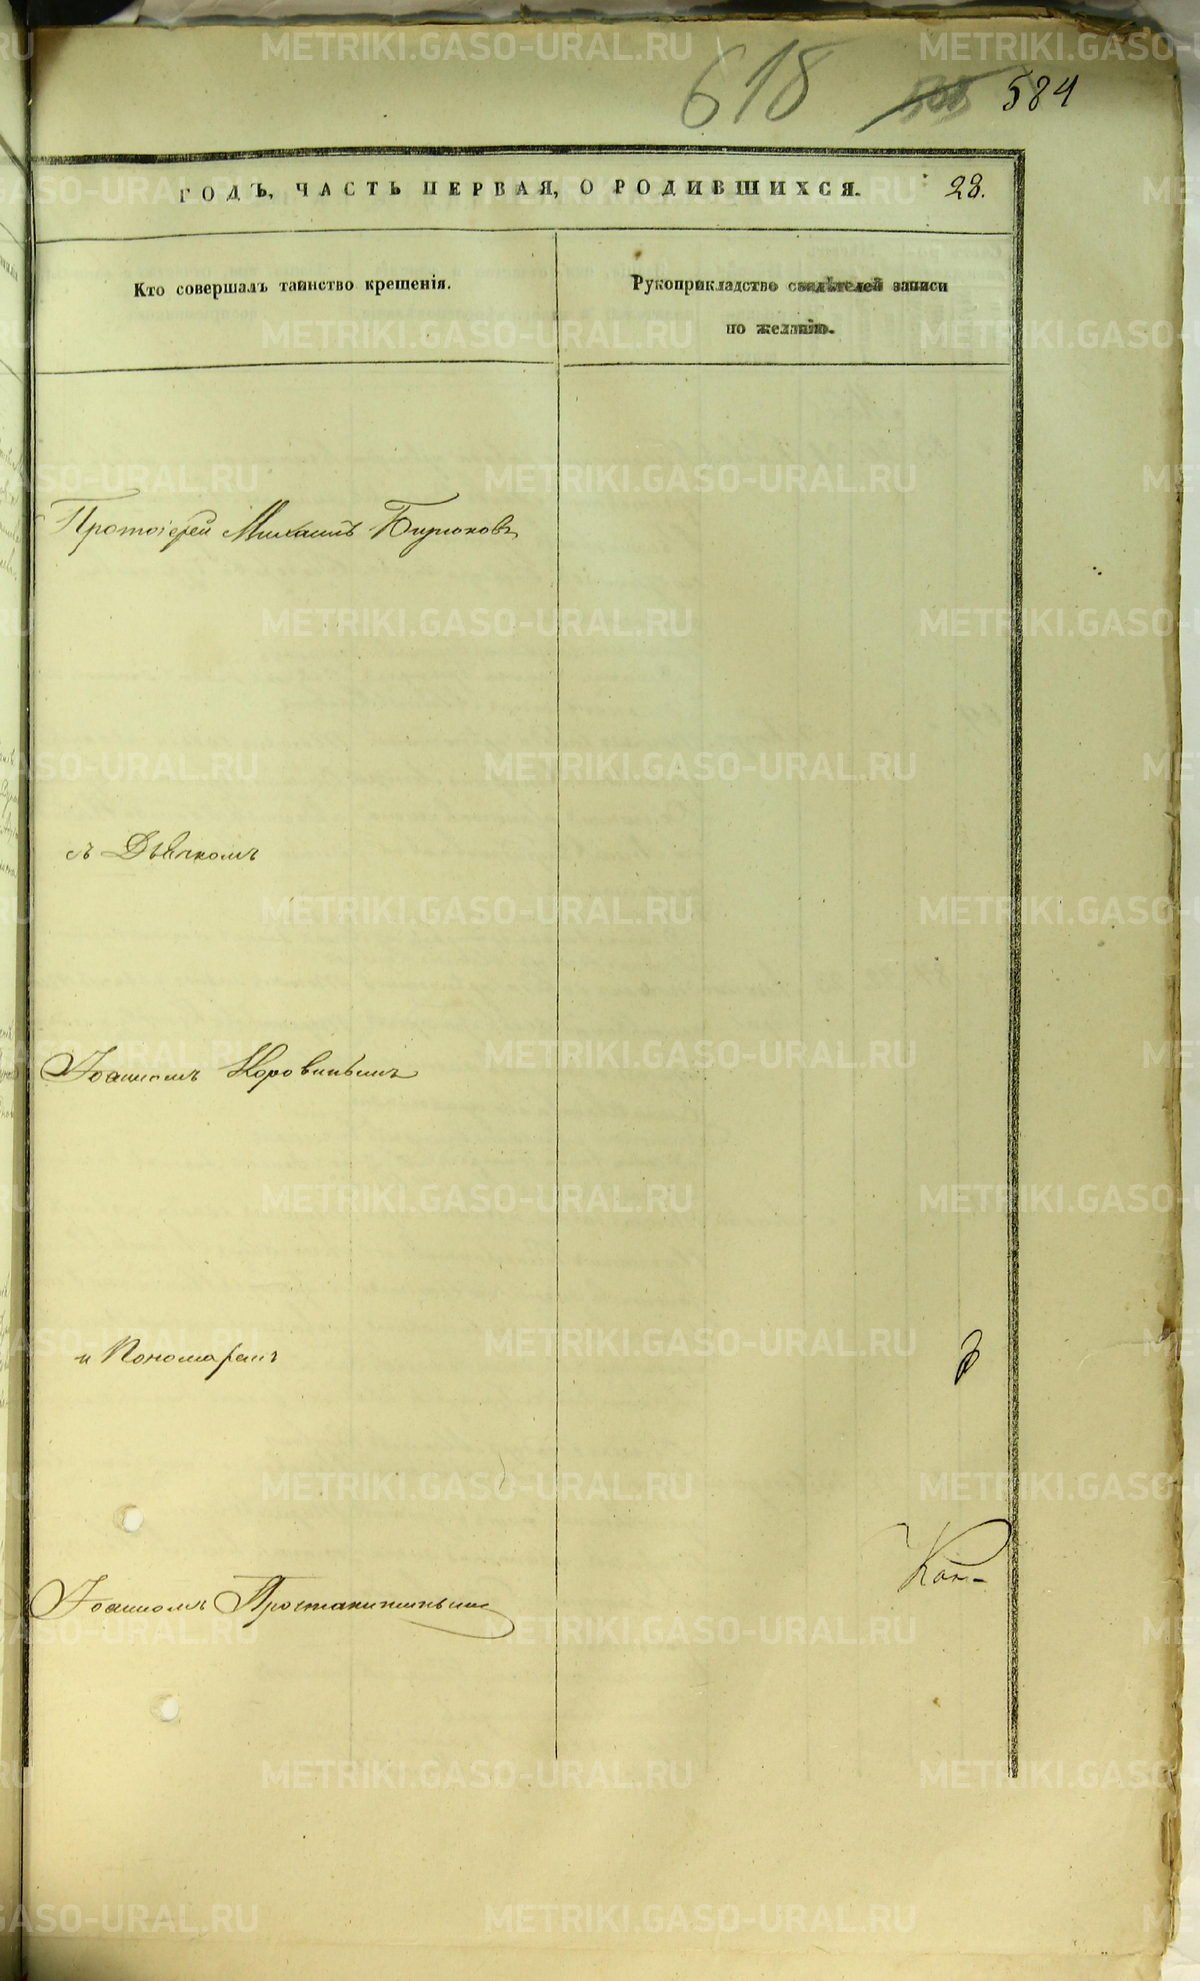 618 584
ГОДЪ, ЧАСТЬ ПЕРВАЯ, О РОДИВШИХСЯ. 23.
Кто совершалъ таинство крещенія.
Рукоприкладство свидѣтелей записи
по желанію.
Протоіерей Михаилъ Бирюковъ
съ Дьячкомъ
Іоанномъ Коровинымъ
и Пономаремъ
Іоанномъ
METRIKI.GASO-URAL.RU